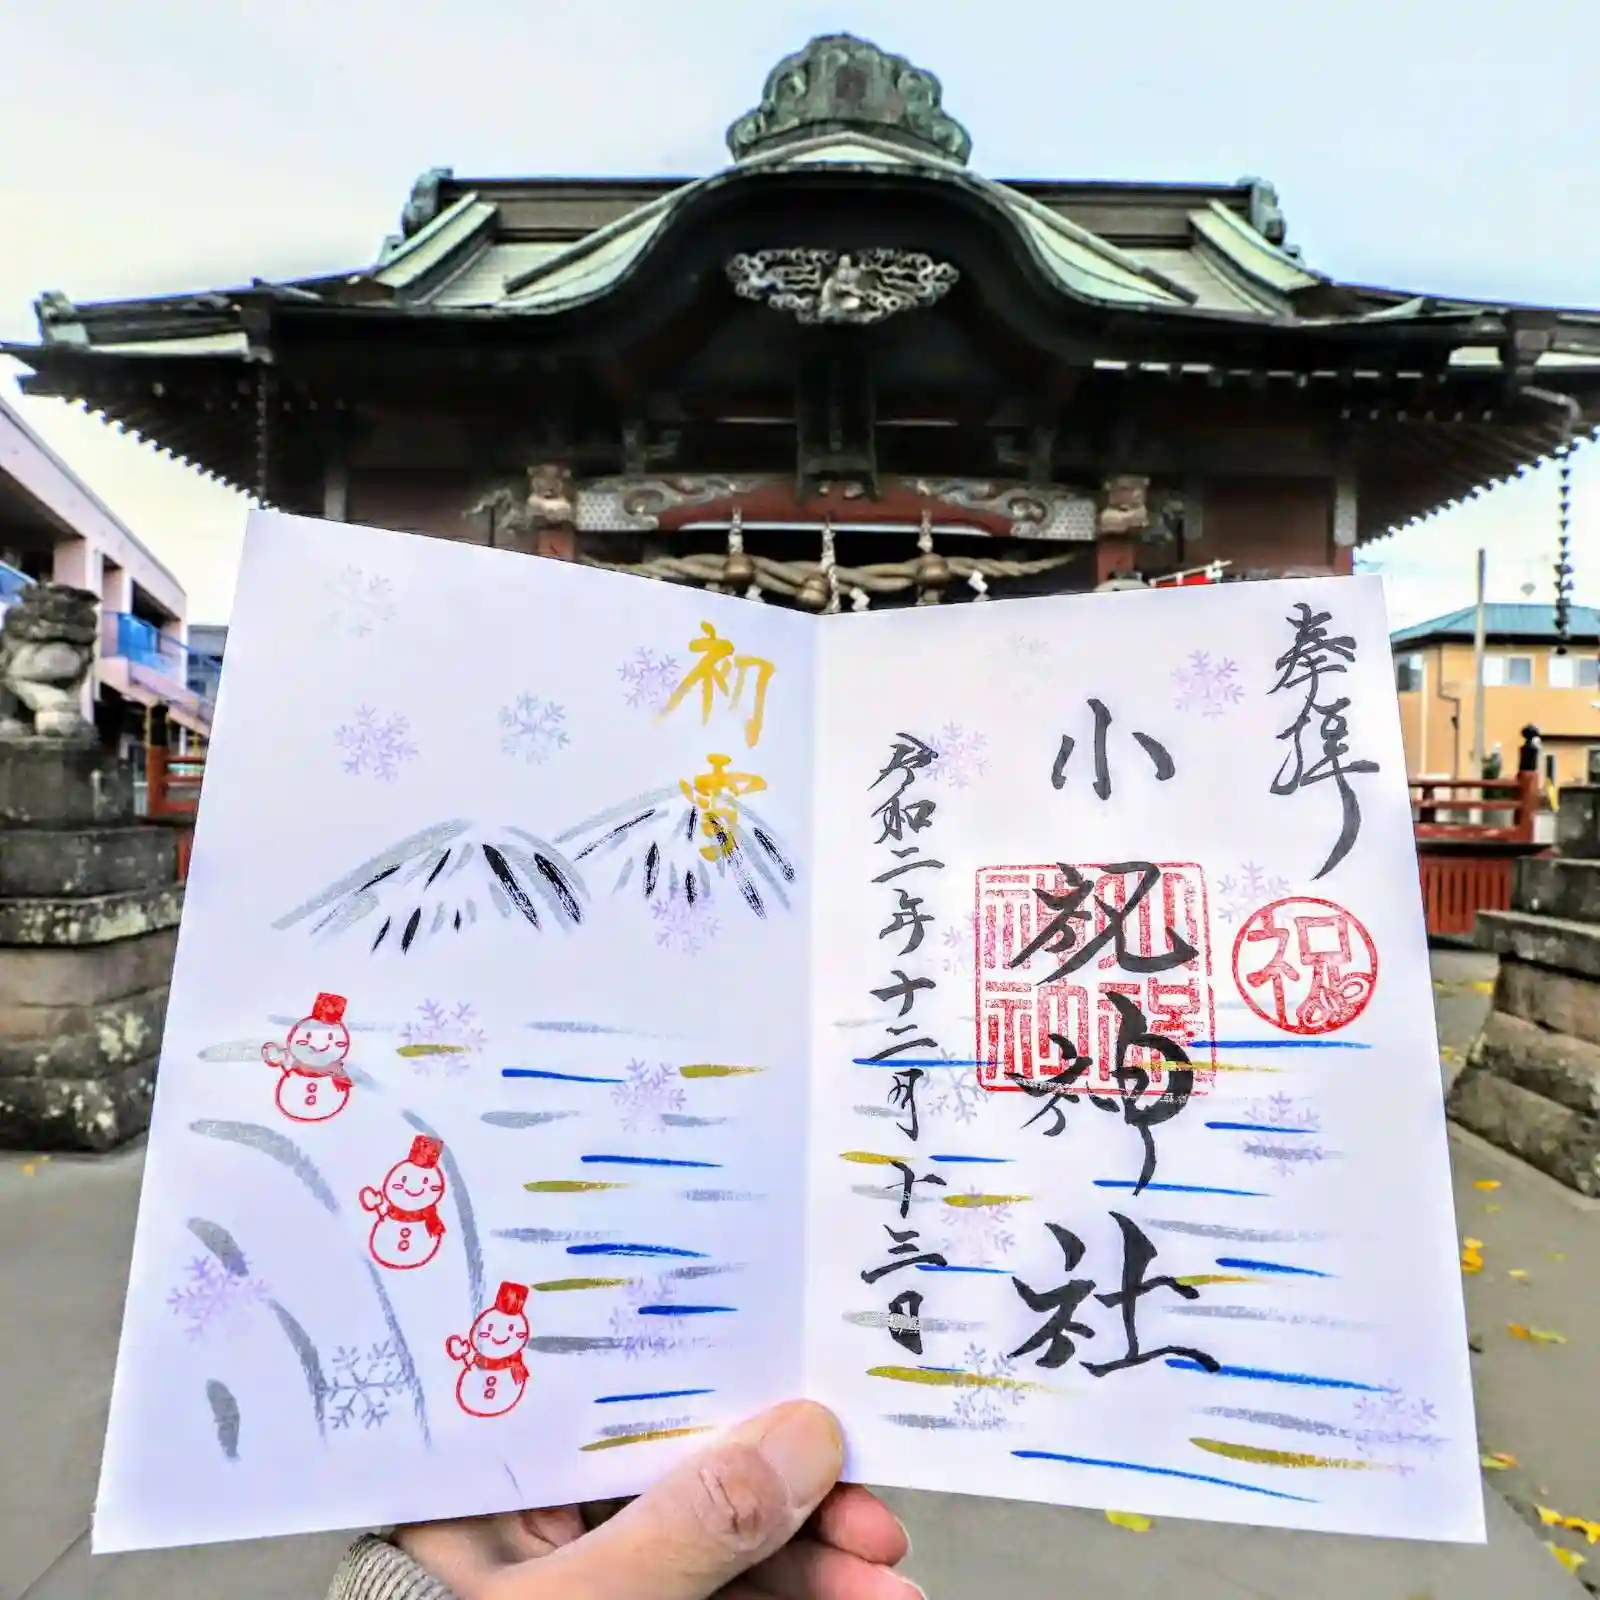 奉拝
祝
小祝神社
小祝神社
令和二年十二月十三日
初雪